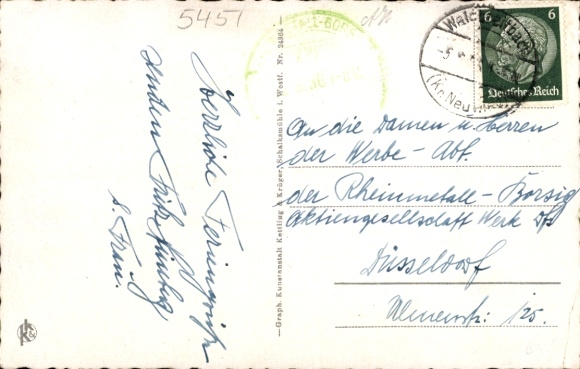 5451
Herzliche Feriengrüße
senden Fritz
u. Frau.
Graph. Kunstanstalt Kettling & Krüger, Schalksmühle i. Westf. Nr. 24964
6 6
Deutsches Reich
An die Damen u. Herren
der Werbe-Abt.
der Rheinmetall-Borsig
Aktiengesellschaft Werk
Düsseldorf
Ulmenstr. 125.